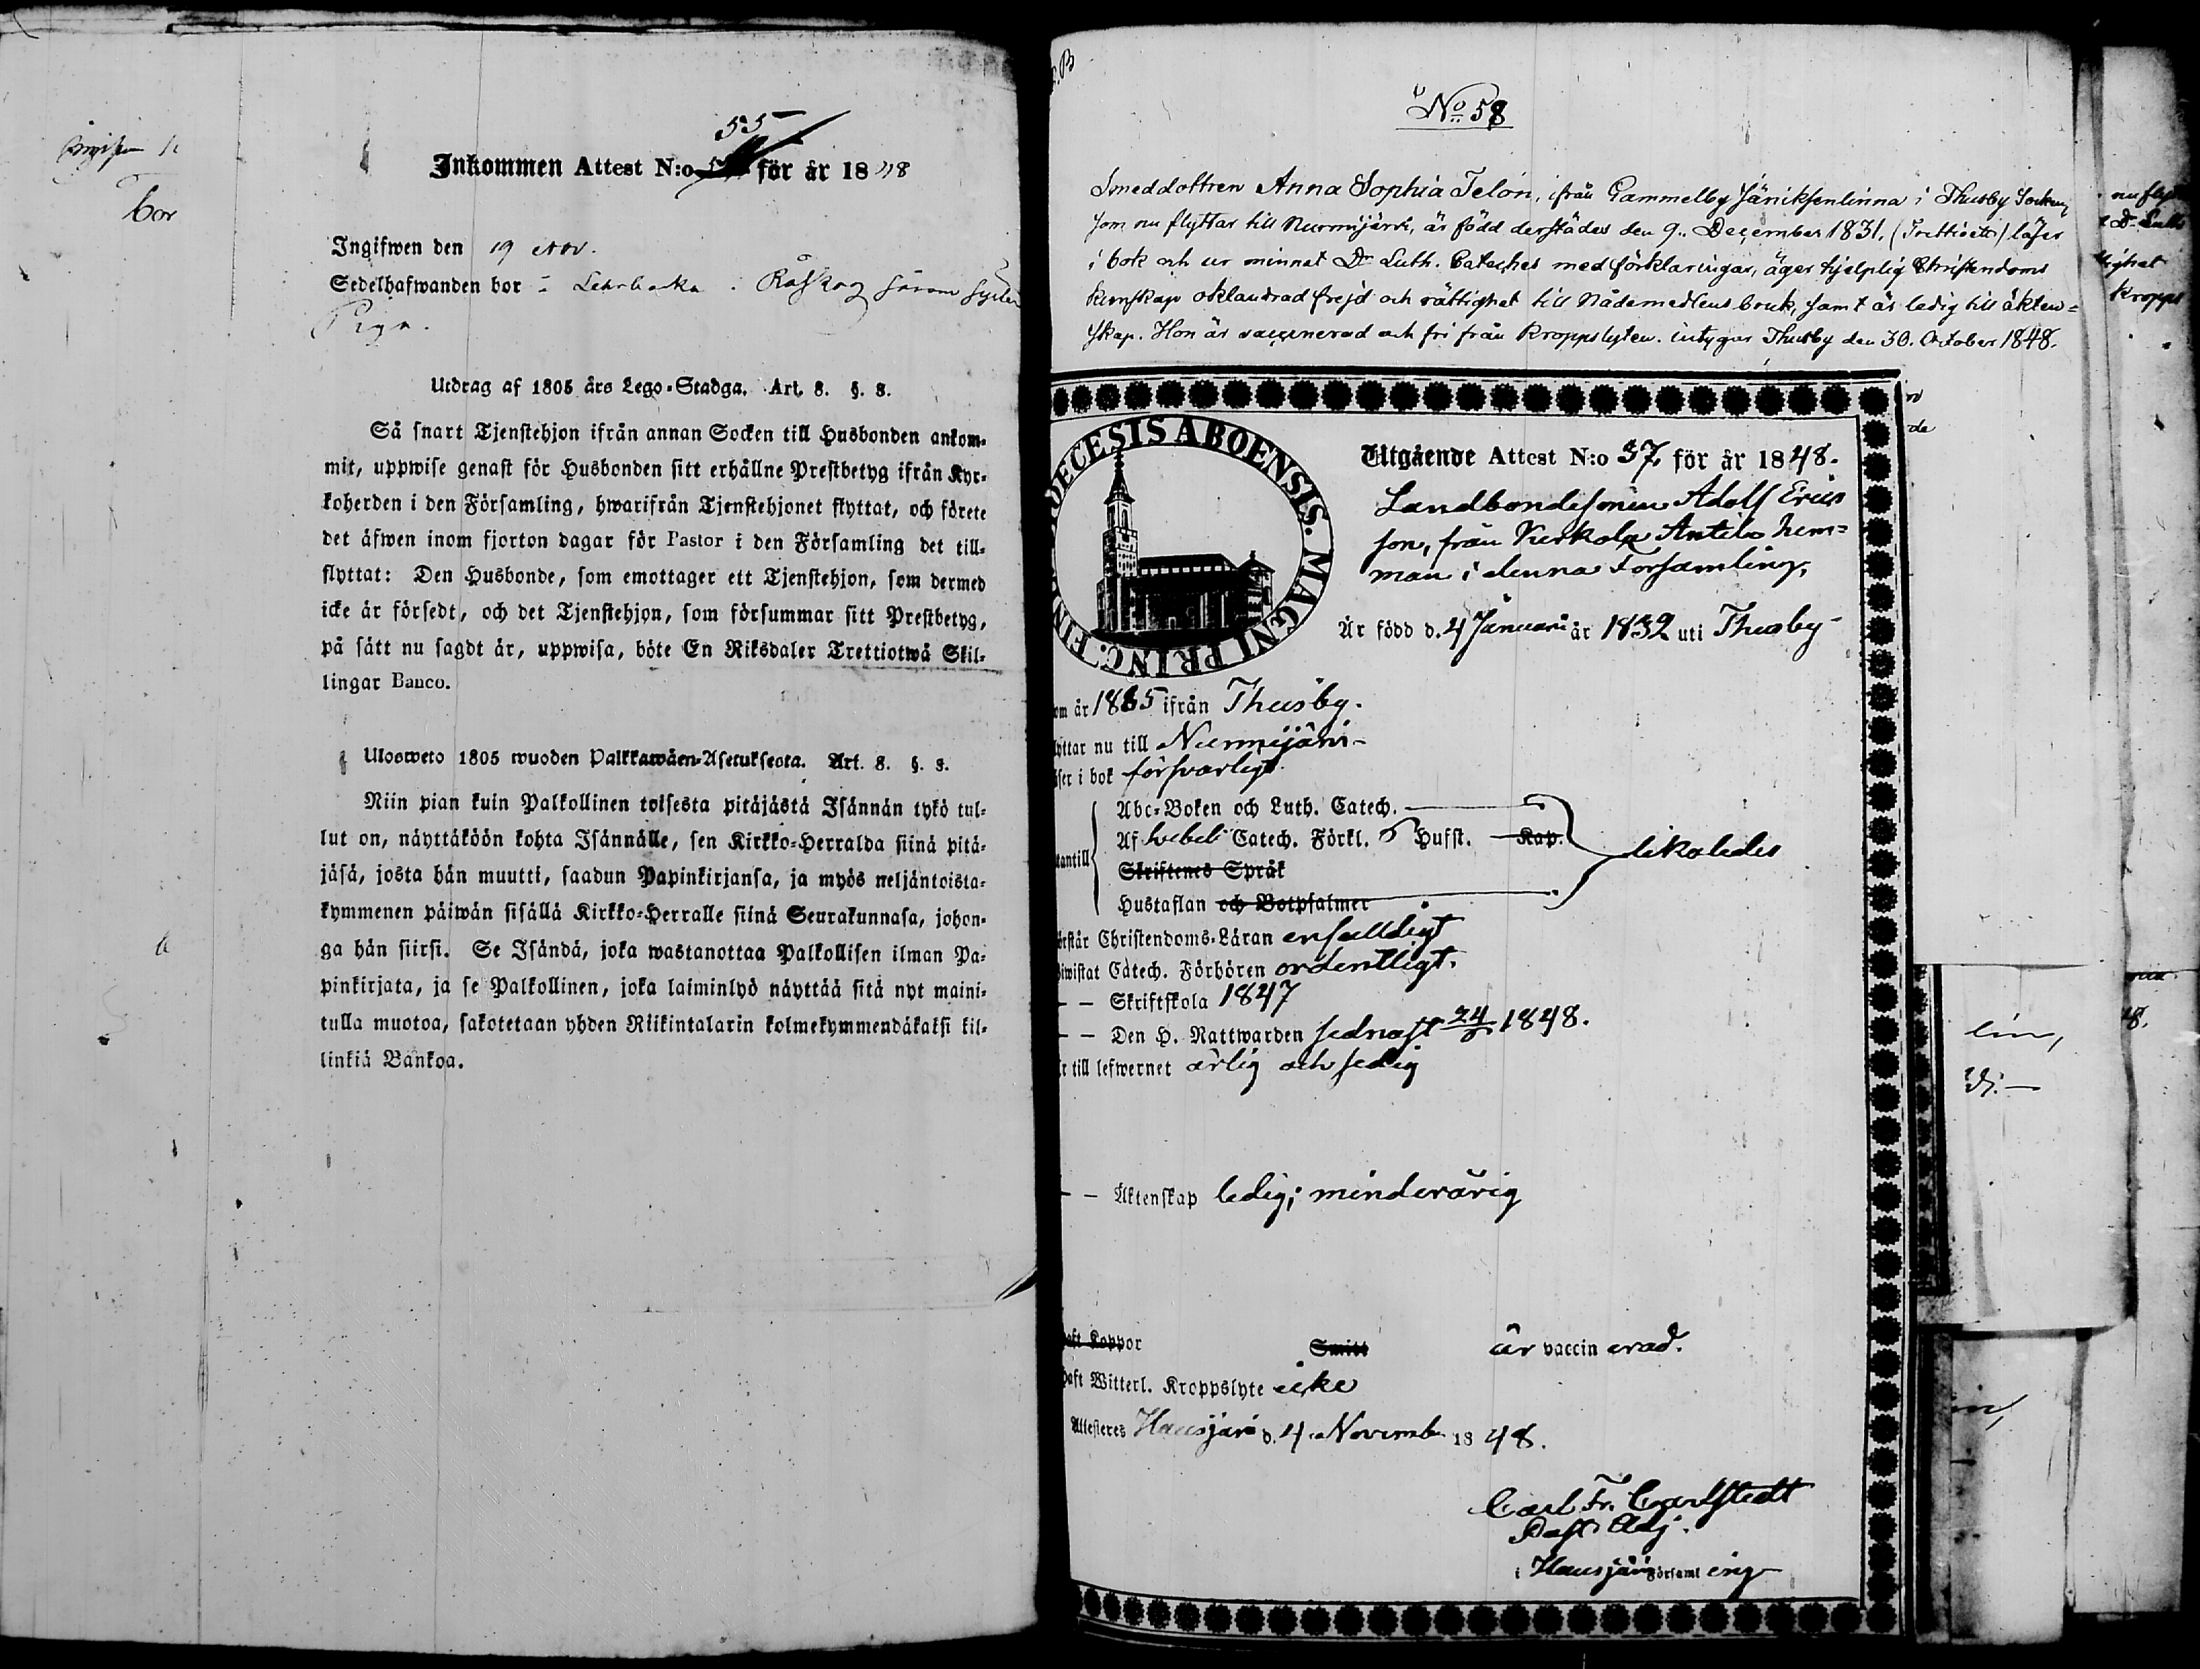 55
Inkommen Attest N:o för år 1848
Ingifwen den 19 Nov.
Sedelhafwanden bor i
Piga.
bor
Utdrag af 1805 års Lego-Stadga. Art. 8. §. 8.
Så snart Tjenstehjon ifrån annan Socken till Husbonden ankom-
mit, uppwise genast för Husbonden sitt erhållne Prestbetyg ifrån Kyr-
koherden i den Församling, hwarifrån Tjenstehjonet flyttat, och förete
det äfwen inom fjorton dagar för Pastor i den Församling det till-
flyttat: Den Husbonde, som emottager ett Tjenstehjon, som dermed
icke är försedt, och det Tjenstehjon, som försummar sitt Prestbetyg,
på sätt nu sagdt är, uppwisa, böte En Riksdaler Trettiotwå Skil-
lingar Banco.
Ulosweto 1805 wuoden Palkkawäen-Asetuksesta. Art. 8. §. 8.
Niin pian kuin Palkollinen toisesta pitäjästä Isännän tykö tul-
lut on, näyttäköön kohta Isännälle, sen Kirkko-Herralda siinä pitä-
jäsä, josta hän muutti, saadun Papinkirjansa, ja myös neljäntoista-
kymmenen päiwän sisällä Kirkko-Herralle siinä Seurakunnasa, johon-
ga hän siirsi. Se Isändä, joka wastanottaa Palkollisen ilman Pa-
pinkirjata, ja se Palkollinen, joka laiminlyö näyttää sitä nyt maini-
tulla muotoa, sakotetaan yhden Riikintalarin kolmekymmendäkaksi kil-
linkiä Bankoa.
No 58
Smeddottren Anna Sophia Telón, ifrån Gammelby Jäniksenlinna i Thusby Socken,
som nu flyttar till Nurmijärvi, är född derstädes den 9. December 1831. (Trettioett) läser
i bok och ur minnet Dr Luth. Cateches med förklaringar, äger hjelplig Christendoms
kunskap oklandrad frejd och rättighet till Nådemedlens bruk, samt är ledig till äkten-
skap. Hon är vaccinerad och fri från kroppslyten. intygar Thusby den 30. October 1848.
DIOECESIS ABOENSIS. MAGNI PRINC. FIN
Utgående Attest N:o 57 för år 1848.
Landbondesonen Adolf Erics
son, från Kerkola Antila hem-
man i denna Församling,
Är född d. 4 Januari år 1832 uti Thusby
om år 1835 ifrån Thusby.
lyttar nu till Nurmijärvi
äser i bok försvarligt.
Abc-Boken och Luth. Catech.
Af Svebeli Catech. Förkl. 5 Hufst. Kap.
utantill likaledes
Skriftenes Språk
Hustaflan och Botpsalmer
örstår Christendoms-Läran enfalldigt
biwistat Catech. Förhören ordentligt.
– – Skriftskola 1847
– – Den H. Nattwarden sednast 1848.
är till lefwernet ärlig och sedig
– – Äktenskap ledig; minderårig
haft Koppor Smitt är vaccin erad.
haft Witterl. Kroppslyte icke
Attesteres Hausjärvi d. 4 Novemb 1848.
Carl Fr. Carlstedt
Past. Adj.
i Hausjärvi Församl ing